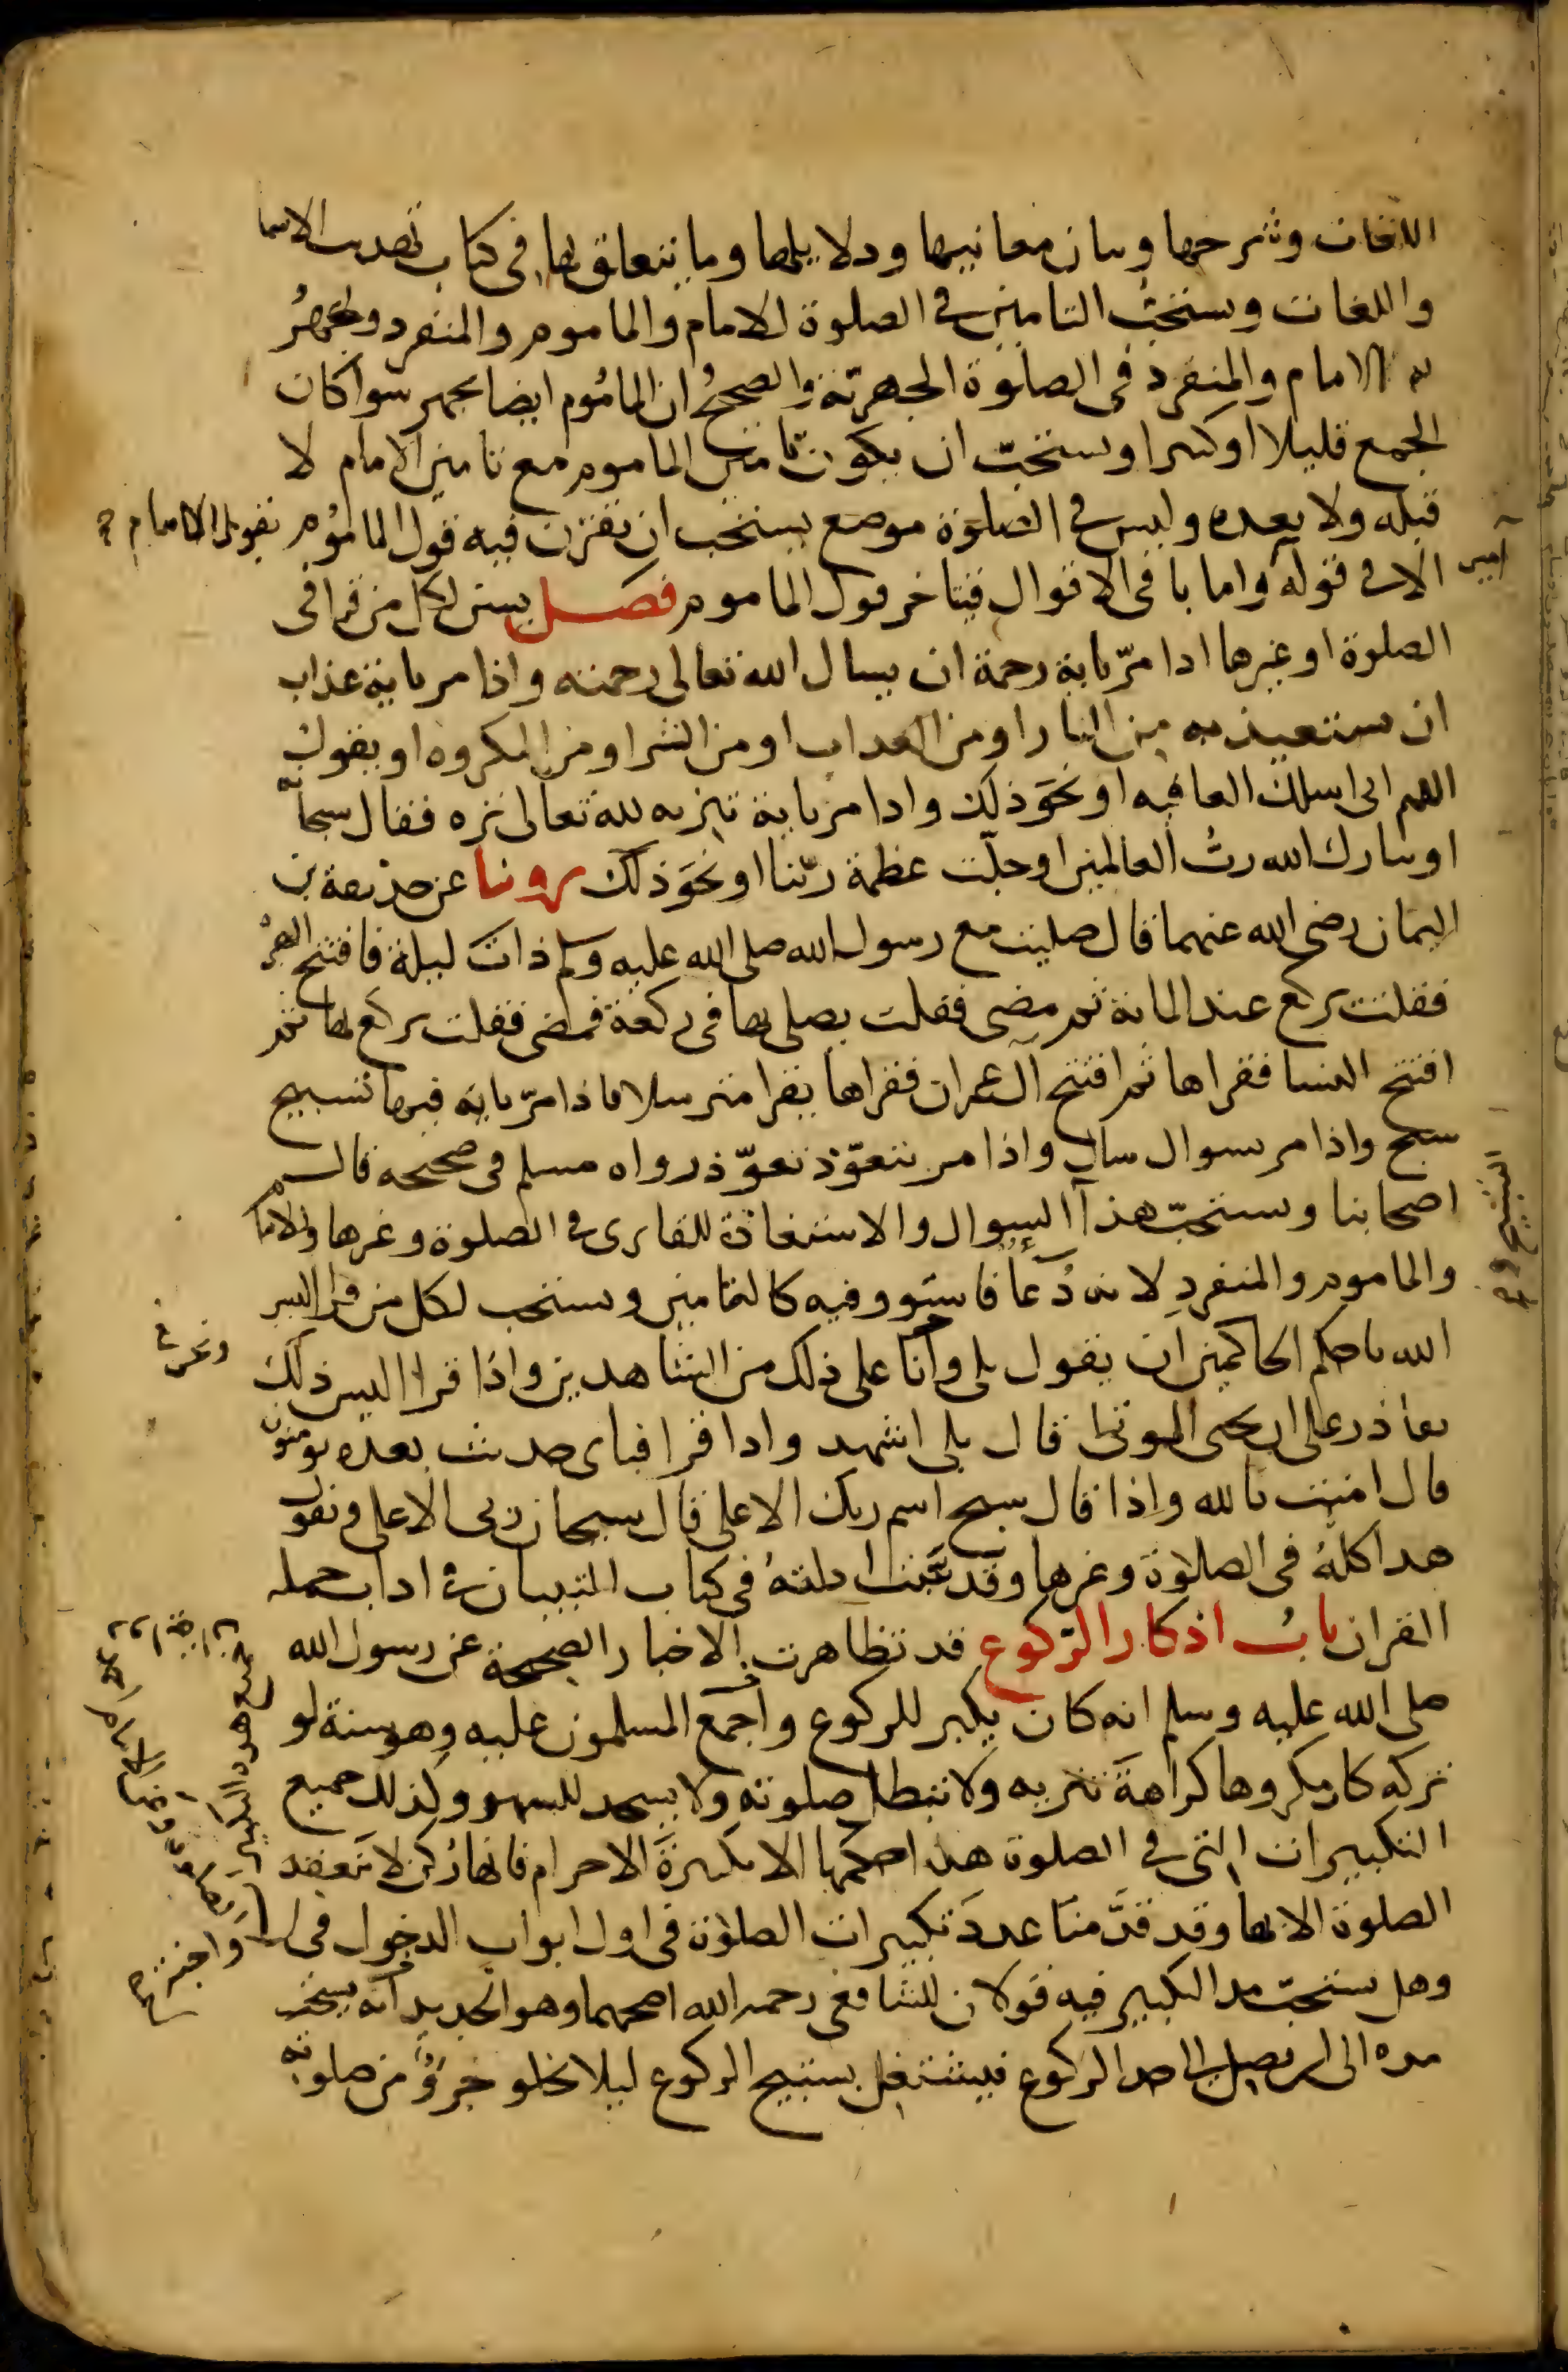 اللغات وشرحها وبيان معانيها ودلايلها وما يتعلق بها في كتاب تهذيب الاسما
واللغات ويستحب التامين في الصلوة للامام والماموم والمنفرد ويجهر
به الامام والمنفرد في الصلوة الجهرية والصحيح ان الماموم ايضا يجهر سوا كان
الجمع قليلا او كثيرا ويستحب ان يكون تامين الماموم مع تامين الامام لا
قبله ولا بعده وليس في الصلوة موضع يستحب ان يقترن فيه قول الماموم بقول الامام
الا في قوله واما باقي الاقوال فيتاخر قول الماموم فصل يسن لكل من قرا في
امين
الصلوة او غيرها اذا مر باية رحمة ان يسال الله تعالى رحمته واذا مر باية عذاب
ان يستعيذ به من النار او من العذاب او من الشر او من المكروه او يقول
اللهم اني اسلك العافيه او نحو ذلك واذا مر باية تنزيه لله تعالى نزه فقال سبحانه
او تبارك الله رب العالمين او جلت عظمة ربنا او نحو ذلك روينا عن حذيفة بن
اليمان رضي الله عنهما قال صليت مع رسول الله صلى الله عليه وسلم ذات ليلة فافتتح البقرة
فقلت يركع عند الماية ثم مضى فقلت يصلي بها في ركعة فمضى فقلت يركع بها ثم
افتتح النسا فقراها ثم افتتح آل عمران فقراها يقرا مترسلا فاذا مر باية فيها تسبيح
سبح واذا مر بسوال سال واذا مر بتعوذ تعوذ رواه مسلم في صحيحه قال
اصحابنا ويستحب هذا السوال والاستعاذة للقاري في الصلوة وغيرها وللامام
التسبيح و
والماموم والمنفرد لانه دعا فاستووا فيه كالتامين ويستحب لكل من قرا اليس
الله باحكم الحاكمين ان يقول بلى وانا على ذلك من الشاهدين واذا قرا اليس ذلك
بقادر على ان يحيى الموتى قال بلى اشهد واذا قرا فباي حديث بعده يومنون
قال امنت بالله واذا قال سبح اسم ربك الاعلى قال سبحان ربي الاعلى ويقول
هذا كله في الصلاوة وغيرها وقد بينت ادلته في كتاب التبيان في اداب حملة
القران باب اذكار الركوع قد تظاهرت الاخبار الصحيحة عن رسول الله
صلى الله عليه وسلم انه كان يكبر للركوع واجمع المسلمون عليه وهو سنة لو
تركه كان مكروها كراهة تنزيه ولا تبطل صلوته ولا يسجد للسهو وكذلك جميع
التكبيرات التي في الصلوة هذا حكمها الا تكبيرة الاحرام فانها ركن لا تنعقد
الصلوة الا بها وقد قدمنا عدد تكبيرات الصلاوة في اول ابواب الدخول في
وهل يستحب مد التكبير فيه قولان للشافعي رحمه الله اصحهما وهو الجديد انه يستحب
مده الى ان يصل الى حد الركوع فيشتغل بتسبيح الركوع ليلا يخلو جزؤ من صلوته